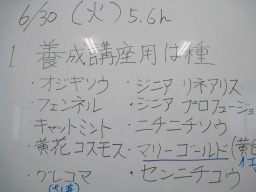 6/30 (火) 5.6h
1 養成講座用は種
・オジギソウ ・ジニア リネアリス
・フェンネル ・ジニア プロフュージョ
・キャットミント ・ニチニチソウ
・黄花コスモス ・マリーゴールド(黄色
・グレコマ ・センニチコウ